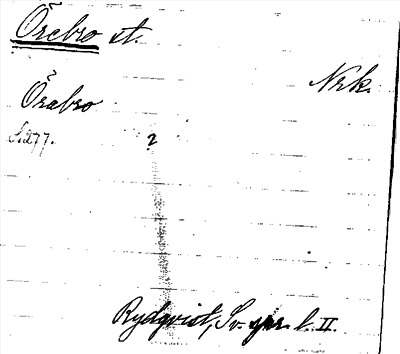 Örebro st.
Nrk.
Örabro
S. 277. 2
Rydqvist, Sv. spr. l. II.